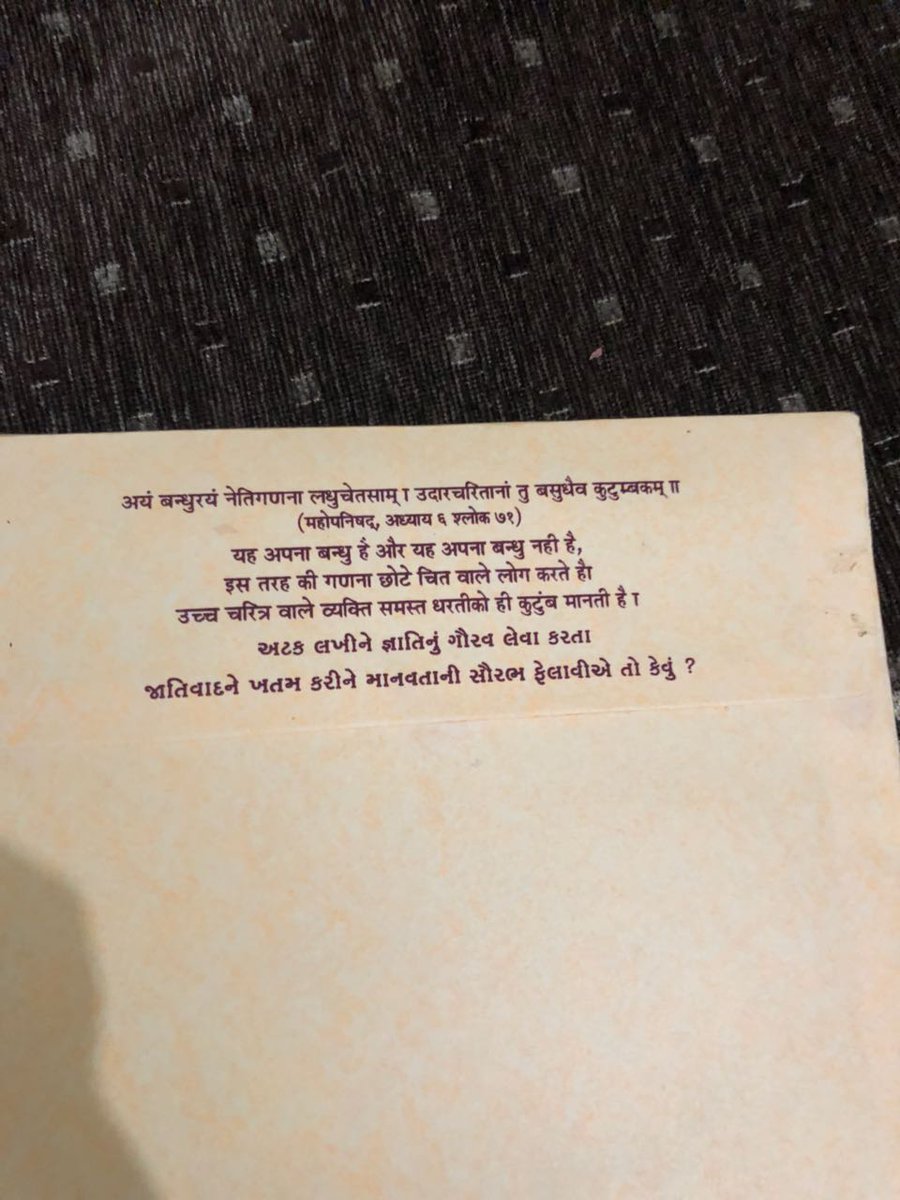 अयं बन्धुरयं नेतिगणना लधुचेतसाम् । उदारचरितानां तु बसुधैव कुटुम्बकम् ॥
(महोपनिषद्, अध्याय ६ श्लोक ७१)
यह अपना बन्धु है और यह अपना बन्धु नही है,
इस तरह की गणना छोटे चित वाले लोग करते है।
उच्च चरित्र वाले व्यक्ति समस्त धरतीको ही कुटुंब मानती है ।
અટક લખીને જ્ઞાતિનું ગૌરવ લેવા કરતા
જાતિવાદને ખતમ કરીને માનવતાની સૌરભ ફેલાવીએ તો કેવું ?